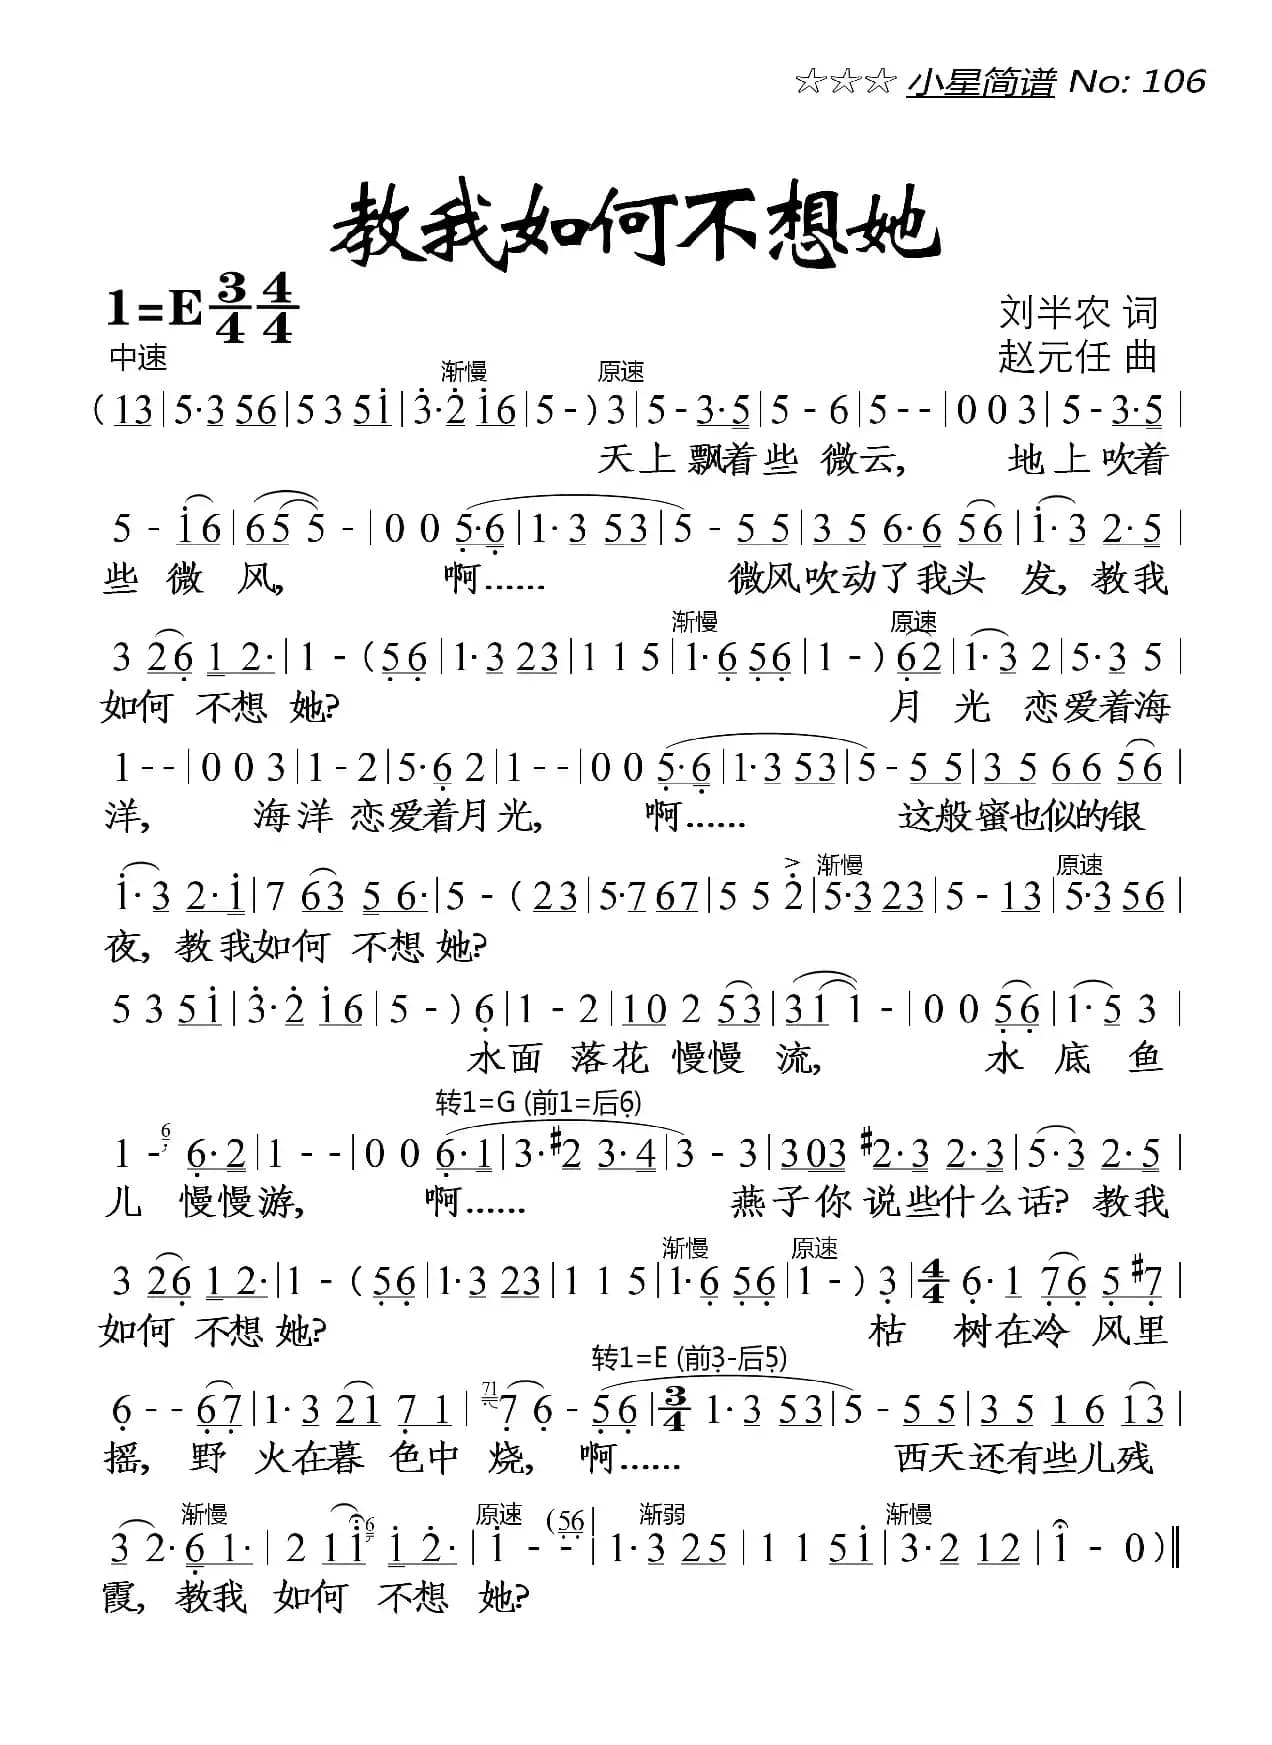 ☆☆☆ 小星简谱 No: 106
教我如何不想她
1=E 3/4 4/4
刘半农 词
中速
赵元任 曲
渐慢 原速
(13|5·3 56|5 3 5i|3·2 i6|5-) 3|5- 3·5|5 - 6|5--|0 0 3|5 - 3·5|
天上飘着些 微云, 地上吹着
5 - i6|65 5 -|0 0 5·6|1·3 53|5 - 5 5|3 5 6·6 56|i·3 2·5|
些 微 风, 啊…… 微风吹动了我头 发, 教我
渐慢 原速
3 26 1 2·|1 - (56|1·3 23|1 1 5|1·6 56|1-) 62|1·3 2|5·3 5|
如何 不想 她? 月 光 恋爱着海
1--|0 0 3|1-2|5·6 2|1--|0 0 5·6|1·3 53|5- 5 5|3 5 6 6 56|
洋, 海洋 恋爱着月光, 啊…… 这般蜜也似的银
> 渐慢 原速
i·3 2·i|7 63 5 6·|5 - (23|5·767|5 5 2|5·3 23|5- 13|5·3 56|
夜, 教我如何 不想她?
5 3 5i|3·2 i6|5 -) 6|1- 2|10 2 53|31 1 -|0 0 56|1·5 3|
水面 落花 慢慢 流, 水 底 鱼
转1=G (前1=后6)
1- 6 6·2|1--|0 0 6·1|3·#2 3·4|3 - 3|303 #2·3 2·3|5·3 2·5|
儿 慢慢游, 啊…… 燕子你 说些什么话? 教我
渐慢 原速
3 26 1 2·|1 - (56|1·3 23|1 1 5|1·6 56|1-) 3|4/4 6·1 76 5 #7|
如何 不想她? 枯 树在冷 风里
转1=E (前3-后5)
6-- 67|1·3 21 7 1|71 7 6 - 56|3/4 1·3 53|5- 5 5|3 5 1 6 13|
摇, 野 火在暮 色中 烧, 啊…… 西天还有些儿残
渐慢 原速 (56| 渐弱 渐慢
3 2·6 1·|2 1i 6 i 2·|i - -|1·3 25|1 1 5i|3·2 12|i - 0)‖
霞, 教我 如何 不想 她?